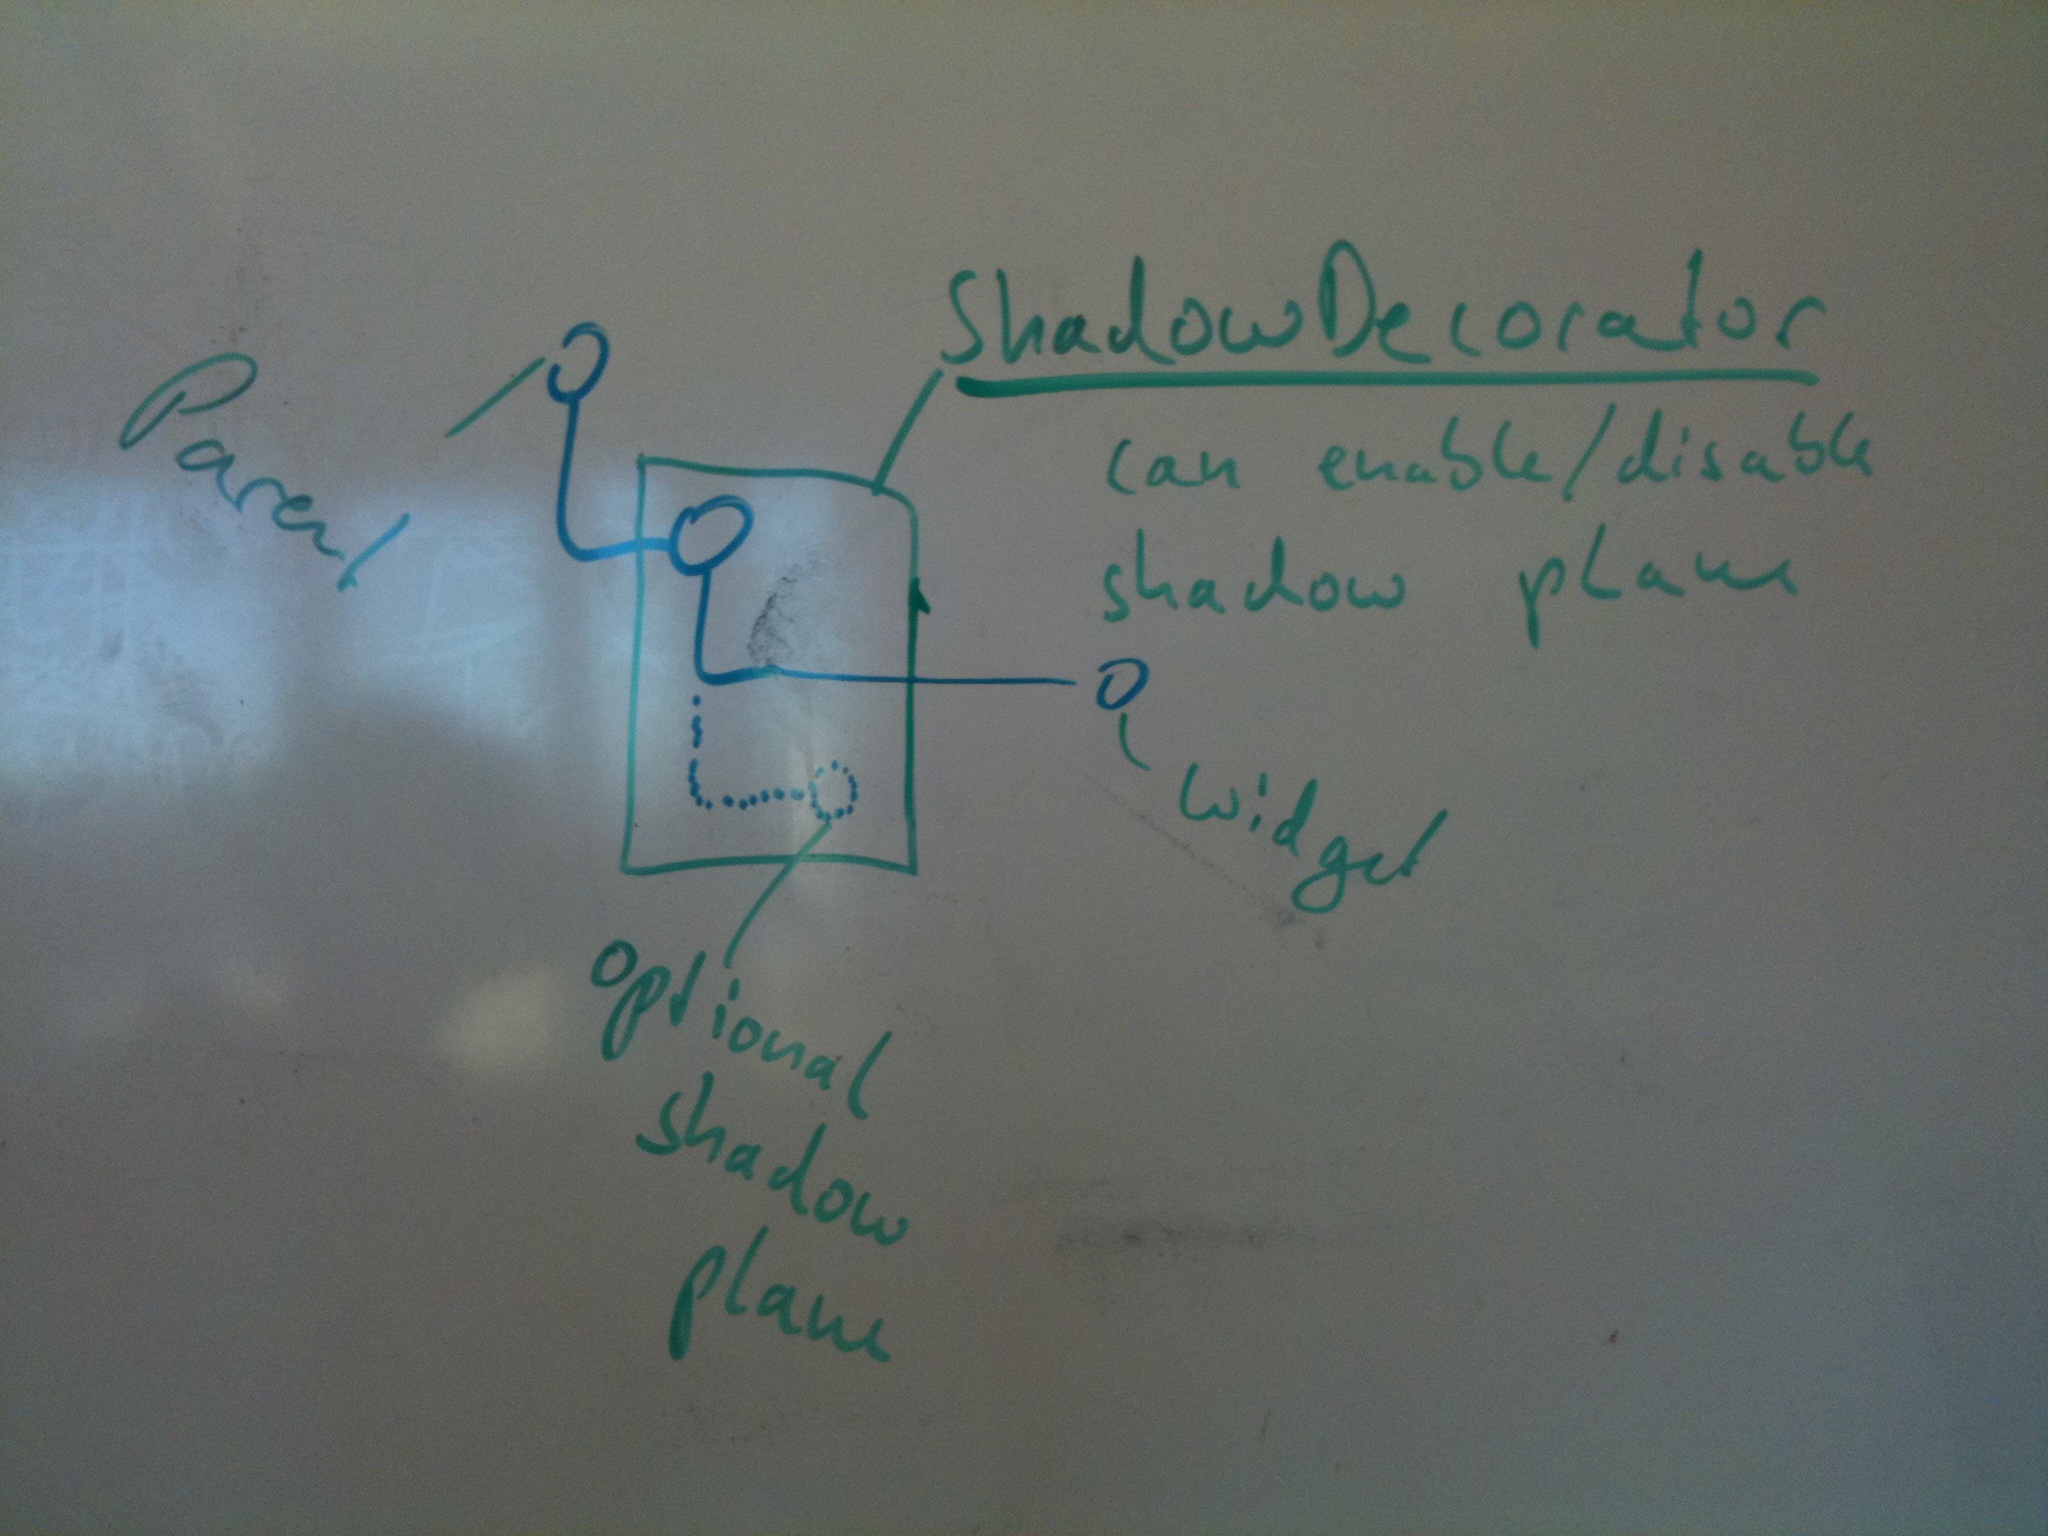 ShadowDecorator
can enable/disable
shadow plane
Parent
widget
optional
shadow
plane